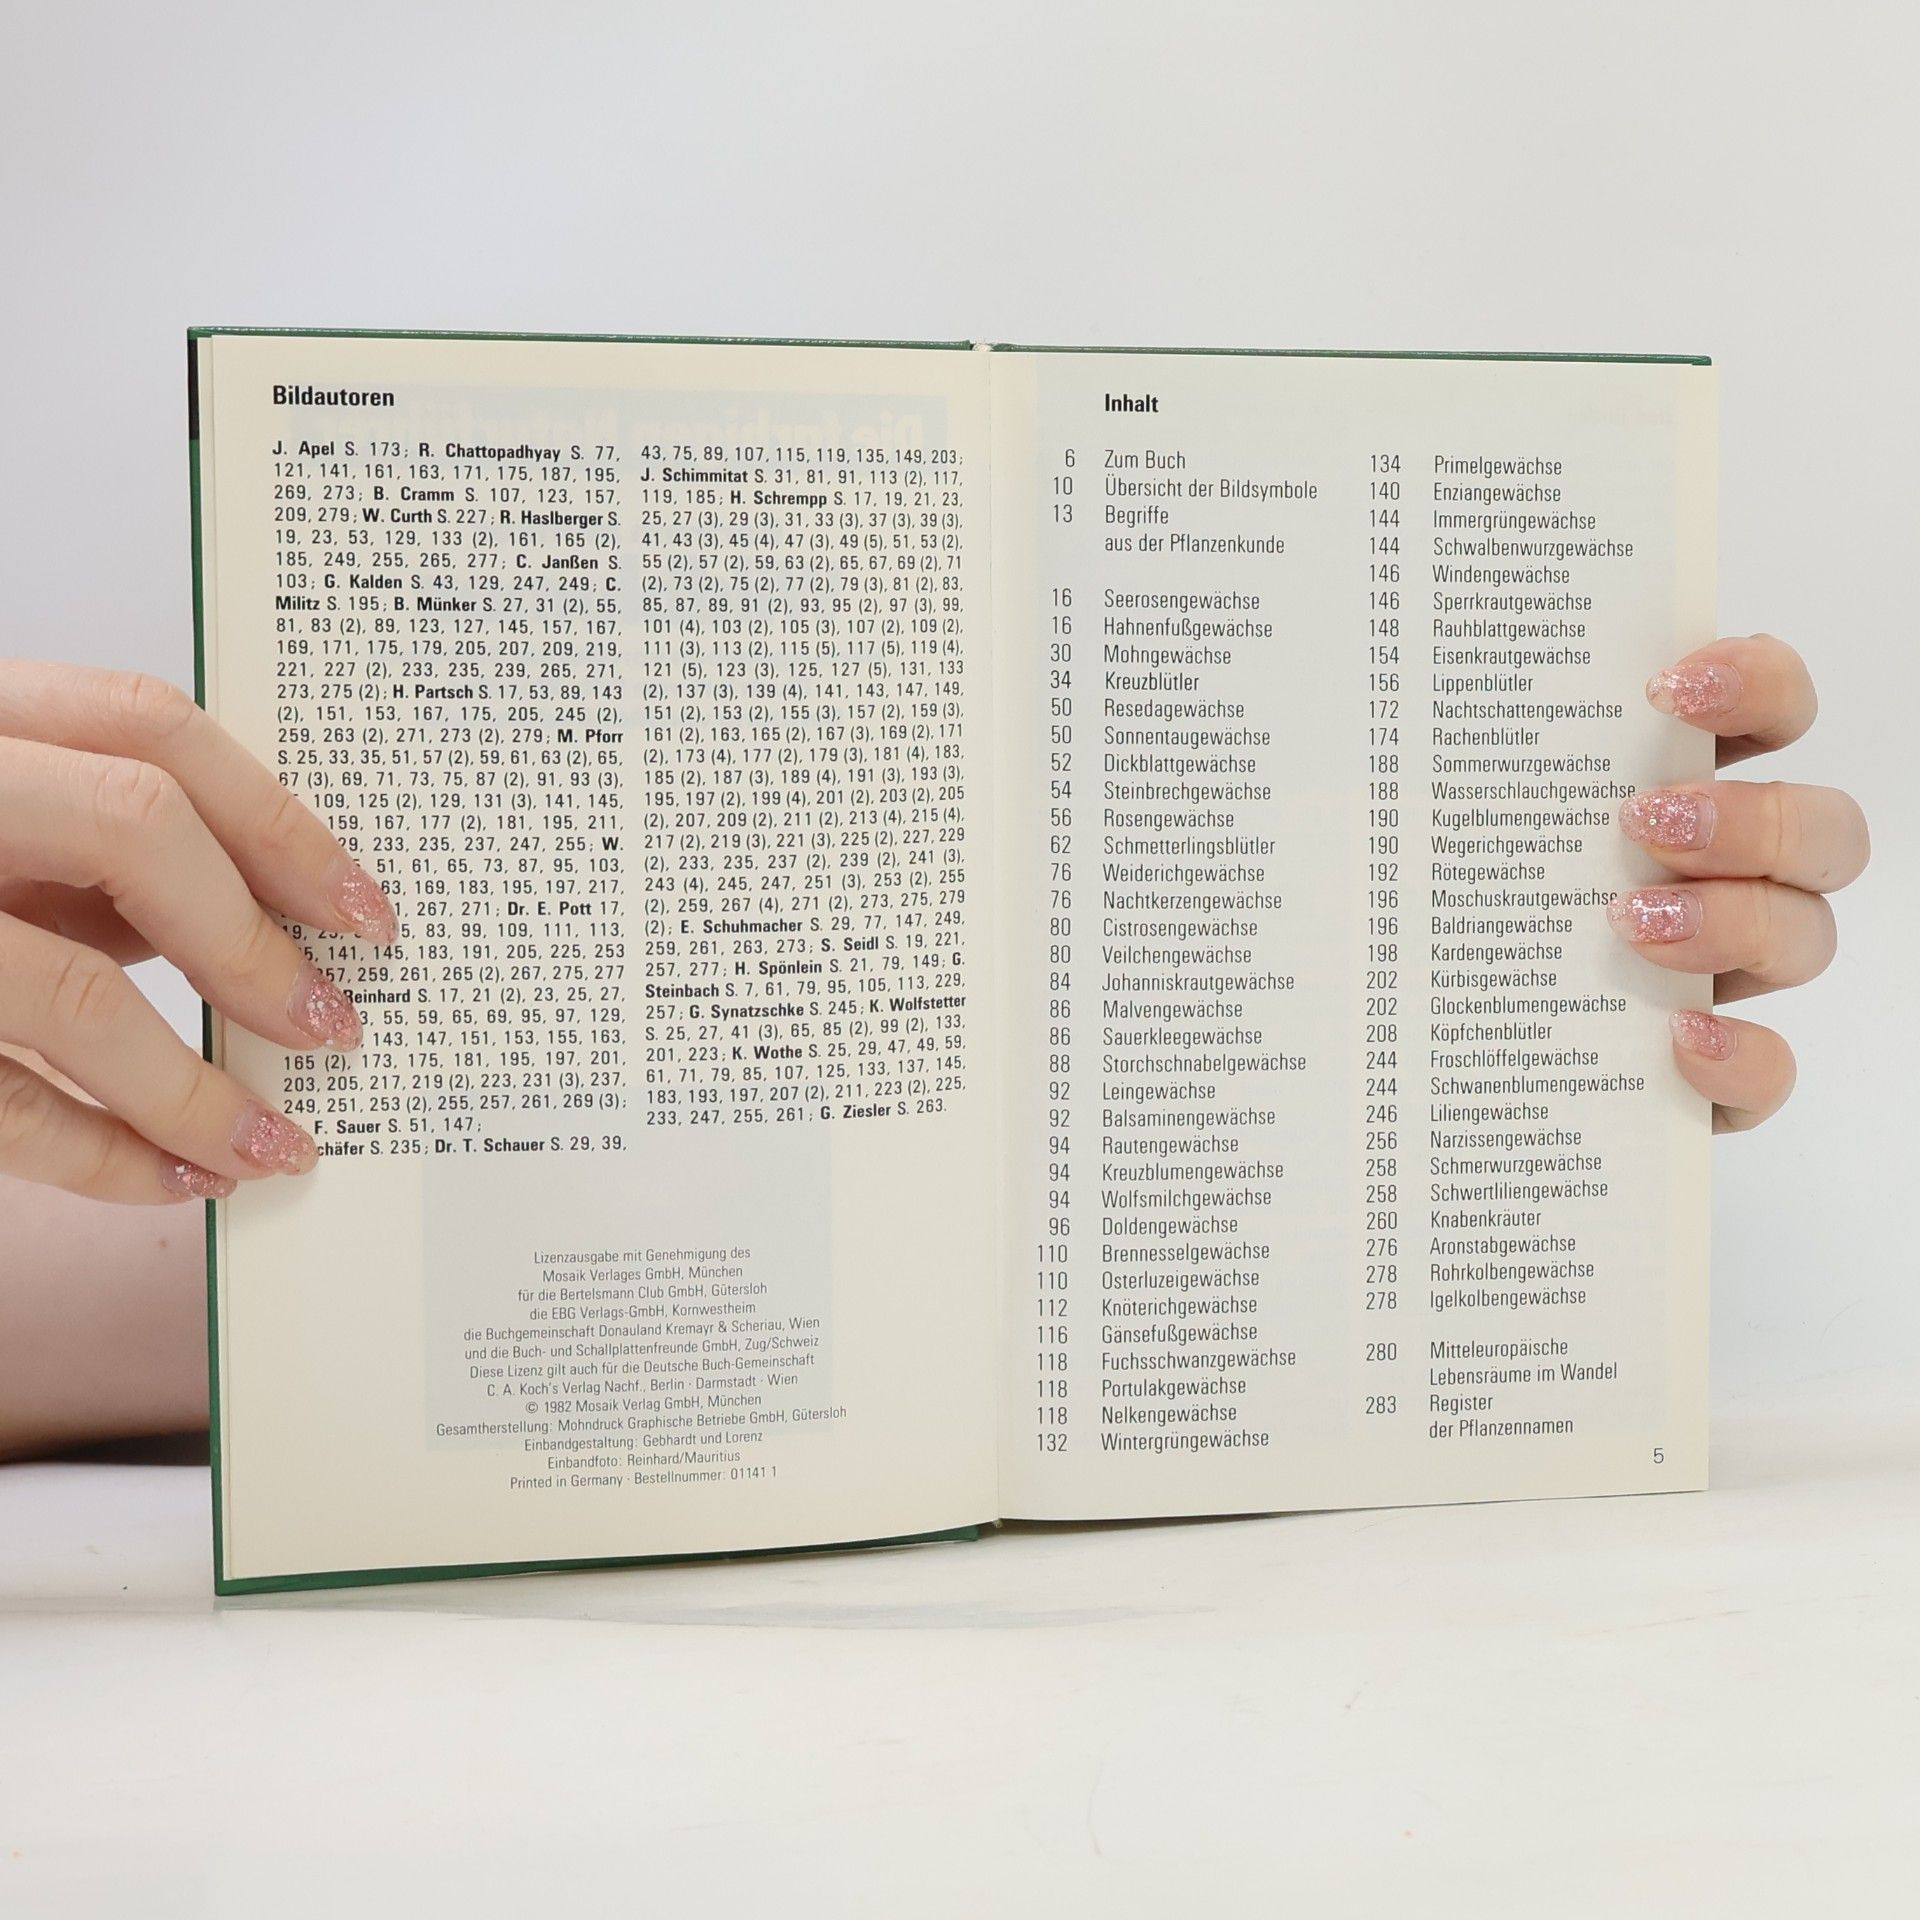 Bildautoren
J. Apel S. 173; R. Chattopadhyay S. 77,
121, 141, 161, 163, 171, 175, 187, 195,
269, 273; B. Cramm S. 107, 123, 157,
209, 279; W. Curth S. 227; R. Haslberger S.
19, 23, 53, 129, 133 (2), 161, 165 (2),
185, 249, 255, 265, 277; C. Janßen S.
103; G. Kalden S. 43, 129, 247, 249; C.
Militz S. 195; B. Münker S. 27, 31 (2), 55,
81, 83 (2), 89, 123, 127, 145, 157, 167,
169, 171, 175, 179, 205, 207, 209, 219,
221, 227 (2), 233, 235, 239, 265, 271,
273, 275 (2); H. Partsch S. 17, 53, 89, 143
(2), 151, 153, 167, 175, 205, 245 (2),
259, 263 (2), 271, 273 (2), 279; M. Pforr
S. 25, 33, 35, 51, 57 (2), 59, 61, 63 (2), 65,
67 (3), 69, 71, 73, 75, 87 (2), 91, 93 (3),
109, 125 (2), 129, 131 (3), 141, 145,
159, 167, 177 (2), 181, 195, 211,
233, 235, 237, 247, 255; W.
51, 61, 65, 73, 87, 95, 103,
169, 183, 195, 197, 217,
267, 271; Dr. E. Pott 17,
83, 99, 109, 111, 113,
141, 145, 183, 191, 205, 225, 253
259, 261, 265 (2), 267, 275, 277
Reinhard S. 17, 21 (2), 23, 25, 27,
55, 59, 65, 69, 95, 97, 129,
143, 147, 151, 153, 155, 163,
165 (2), 173, 175, 181, 195, 197, 201,
203, 205, 217, 219 (2), 223, 231 (3), 237,
249, 251, 253 (2), 255, 257, 261, 269 (3);
F. Sauer S. 51, 147;
S. 235; Dr. T. Schauer S. 29, 39,
43, 75, 89, 107, 115, 119, 135, 149, 203;
J. Schimmitat S. 31, 81, 91, 113 (2), 117,
119, 185; H. Schrempp S. 17, 19, 21, 23,
25, 27 (3), 29 (3), 31, 33 (3), 37 (3), 39 (3),
41, 43 (3), 45 (4), 47 (3), 49 (5), 51, 53 (2),
55 (2), 57 (2), 59, 63 (2), 65, 67, 69 (2), 71
(2), 73 (2), 75 (2), 77 (2), 79 (3), 81 (2), 83,
85, 87, 89, 91 (2), 93, 95 (2), 97 (3), 99,
101 (4), 103 (2), 105 (3), 107 (2), 109 (2),
111 (3), 113 (2), 115 (5), 117 (5), 119 (4),
121 (5), 123 (3), 125, 127 (5), 131, 133
(2), 137 (3), 139 (4), 141, 143, 147, 149,
151 (2), 153 (2), 155 (3), 157 (2), 159 (3),
161 (2), 163, 165 (2), 167 (3), 169 (2), 171
(2), 173 (4), 177 (2), 179 (3), 181 (4), 183,
185 (2), 187 (3), 189 (4), 191 (3), 193 (3),
195, 197 (2), 199 (4), 201 (2), 203 (2), 205
(2), 207, 209 (2), 211 (2), 213 (4), 215 (4),
217 (2), 219 (3), 221 (3), 225 (2), 227, 229
(2), 233, 235, 237 (2), 239 (2), 241 (3),
243 (4), 245, 247, 251 (3), 253 (2), 255
(2), 259, 267 (4), 271 (2), 273, 275, 279
(2); E. Schuhmacher S. 29, 77, 147, 249,
259, 261, 263, 273; S. Seidl S. 19, 221,
257, 277; H. Spönlein S. 21, 79, 149; G.
Steinbach S. 7, 61, 79, 95, 105, 113, 229,
257; G. Synatzschke S. 245; K. Wolfstetter
S. 25, 27, 41 (3), 65, 85 (2), 99 (2), 133,
201, 223; K. Wothe S. 25, 29, 47, 49, 59,
61, 71, 79, 85, 107, 125, 133, 137, 145,
183, 193, 197, 207 (2), 211, 223 (2), 225,
233, 247, 255, 261; G. Ziesler S. 263.
Lizenzausgabe mit Genehmigung des
Mosaik Verlages GmbH, München
für die Bertelsmann Club GmbH, Gütersloh
die EBG Verlags-GmbH, Kornwestheim
die Buchgemeinschaft Donauland Kremayr & Scheriau, Wien
und die Buch- und Schallplattenfreunde GmbH, Zug/Schweiz
Diese Lizenz gilt auch für die Deutsche Buch-Gemeinschaft
C. A. Koch's Verlag Nachf., Berlin · Darmstadt · Wien
© 1982 Mosaik Verlag GmbH, München
Gesamtherstellung: Mohndruck Graphische Betriebe GmbH, Gütersloh
Einbandgestaltung: Gebhardt und Lorenz
Einbandfoto: Reinhard/Mauritius
Printed in Germany · Bestellnummer: 01141 1
Inhalt
6 Zum Buch
10 Übersicht der Bildsymbole
13 Begriffe
aus der Pflanzenkunde
16 Seerosengewächse
16 Hahnenfußgewächse
30 Mohngewächse
34 Kreuzblütler
50 Resedagewächse
50 Sonnentaugewächse
52 Dickblattgewächse
54 Steinbrechgewächse
56 Rosengewächse
62 Schmetterlingsblütler
76 Weiderichgewächse
76 Nachtkerzengewächse
80 Cistrosengewächse
80 Veilchengewächse
84 Johanniskrautgewächse
86 Malvengewächse
86 Sauerkleegewächse
88 Storchschnabelgewächse
92 Leingewächse
92 Balsaminengewächse
94 Rautengewächse
94 Kreuzblumengewächse
94 Wolfsmilchgewächse
96 Doldengewächse
110 Brennesselgewächse
110 Osterluzeigewächse
112 Knöterichgewächse
116 Gänsefußgewächse
118 Fuchsschwanzgewächse
118 Portulakgewächse
118 Nelkengewächse
132 Wintergrüngewächse
134 Primelgewächse
140 Enziangewächse
144 Immergrüngewächse
144 Schwalbenwurzgewächse
146 Windengewächse
146 Sperrkrautgewächse
148 Rauhblattgewächse
154 Eisenkrautgewächse
156 Lippenblütler
172 Nachtschattengewächse
174 Rachenblütler
188 Sommerwurzgewächse
188 Wasserschlauchgewächse
190 Kugelblumengewächse
190 Wegerichgewächse
192 Rötegewächse
196 Moschuskrautgewächse
196 Baldriangewächse
198 Kardengewächse
202 Kürbisgewächse
202 Glockenblumengewächse
208 Köpfchenblütler
244 Froschlöffelgewächse
244 Schwanenblumengewächse
246 Liliengewächse
256 Narzissengewächse
258 Schmerwurzgewächse
258 Schwertliliengewächse
260 Knabenkräuter
276 Aronstabgewächse
278 Rohrkolbengewächse
278 Igelkolbengewächse
280 Mitteleuropäische
Lebensräume im Wandel
283 Register
der Pflanzennamen
5